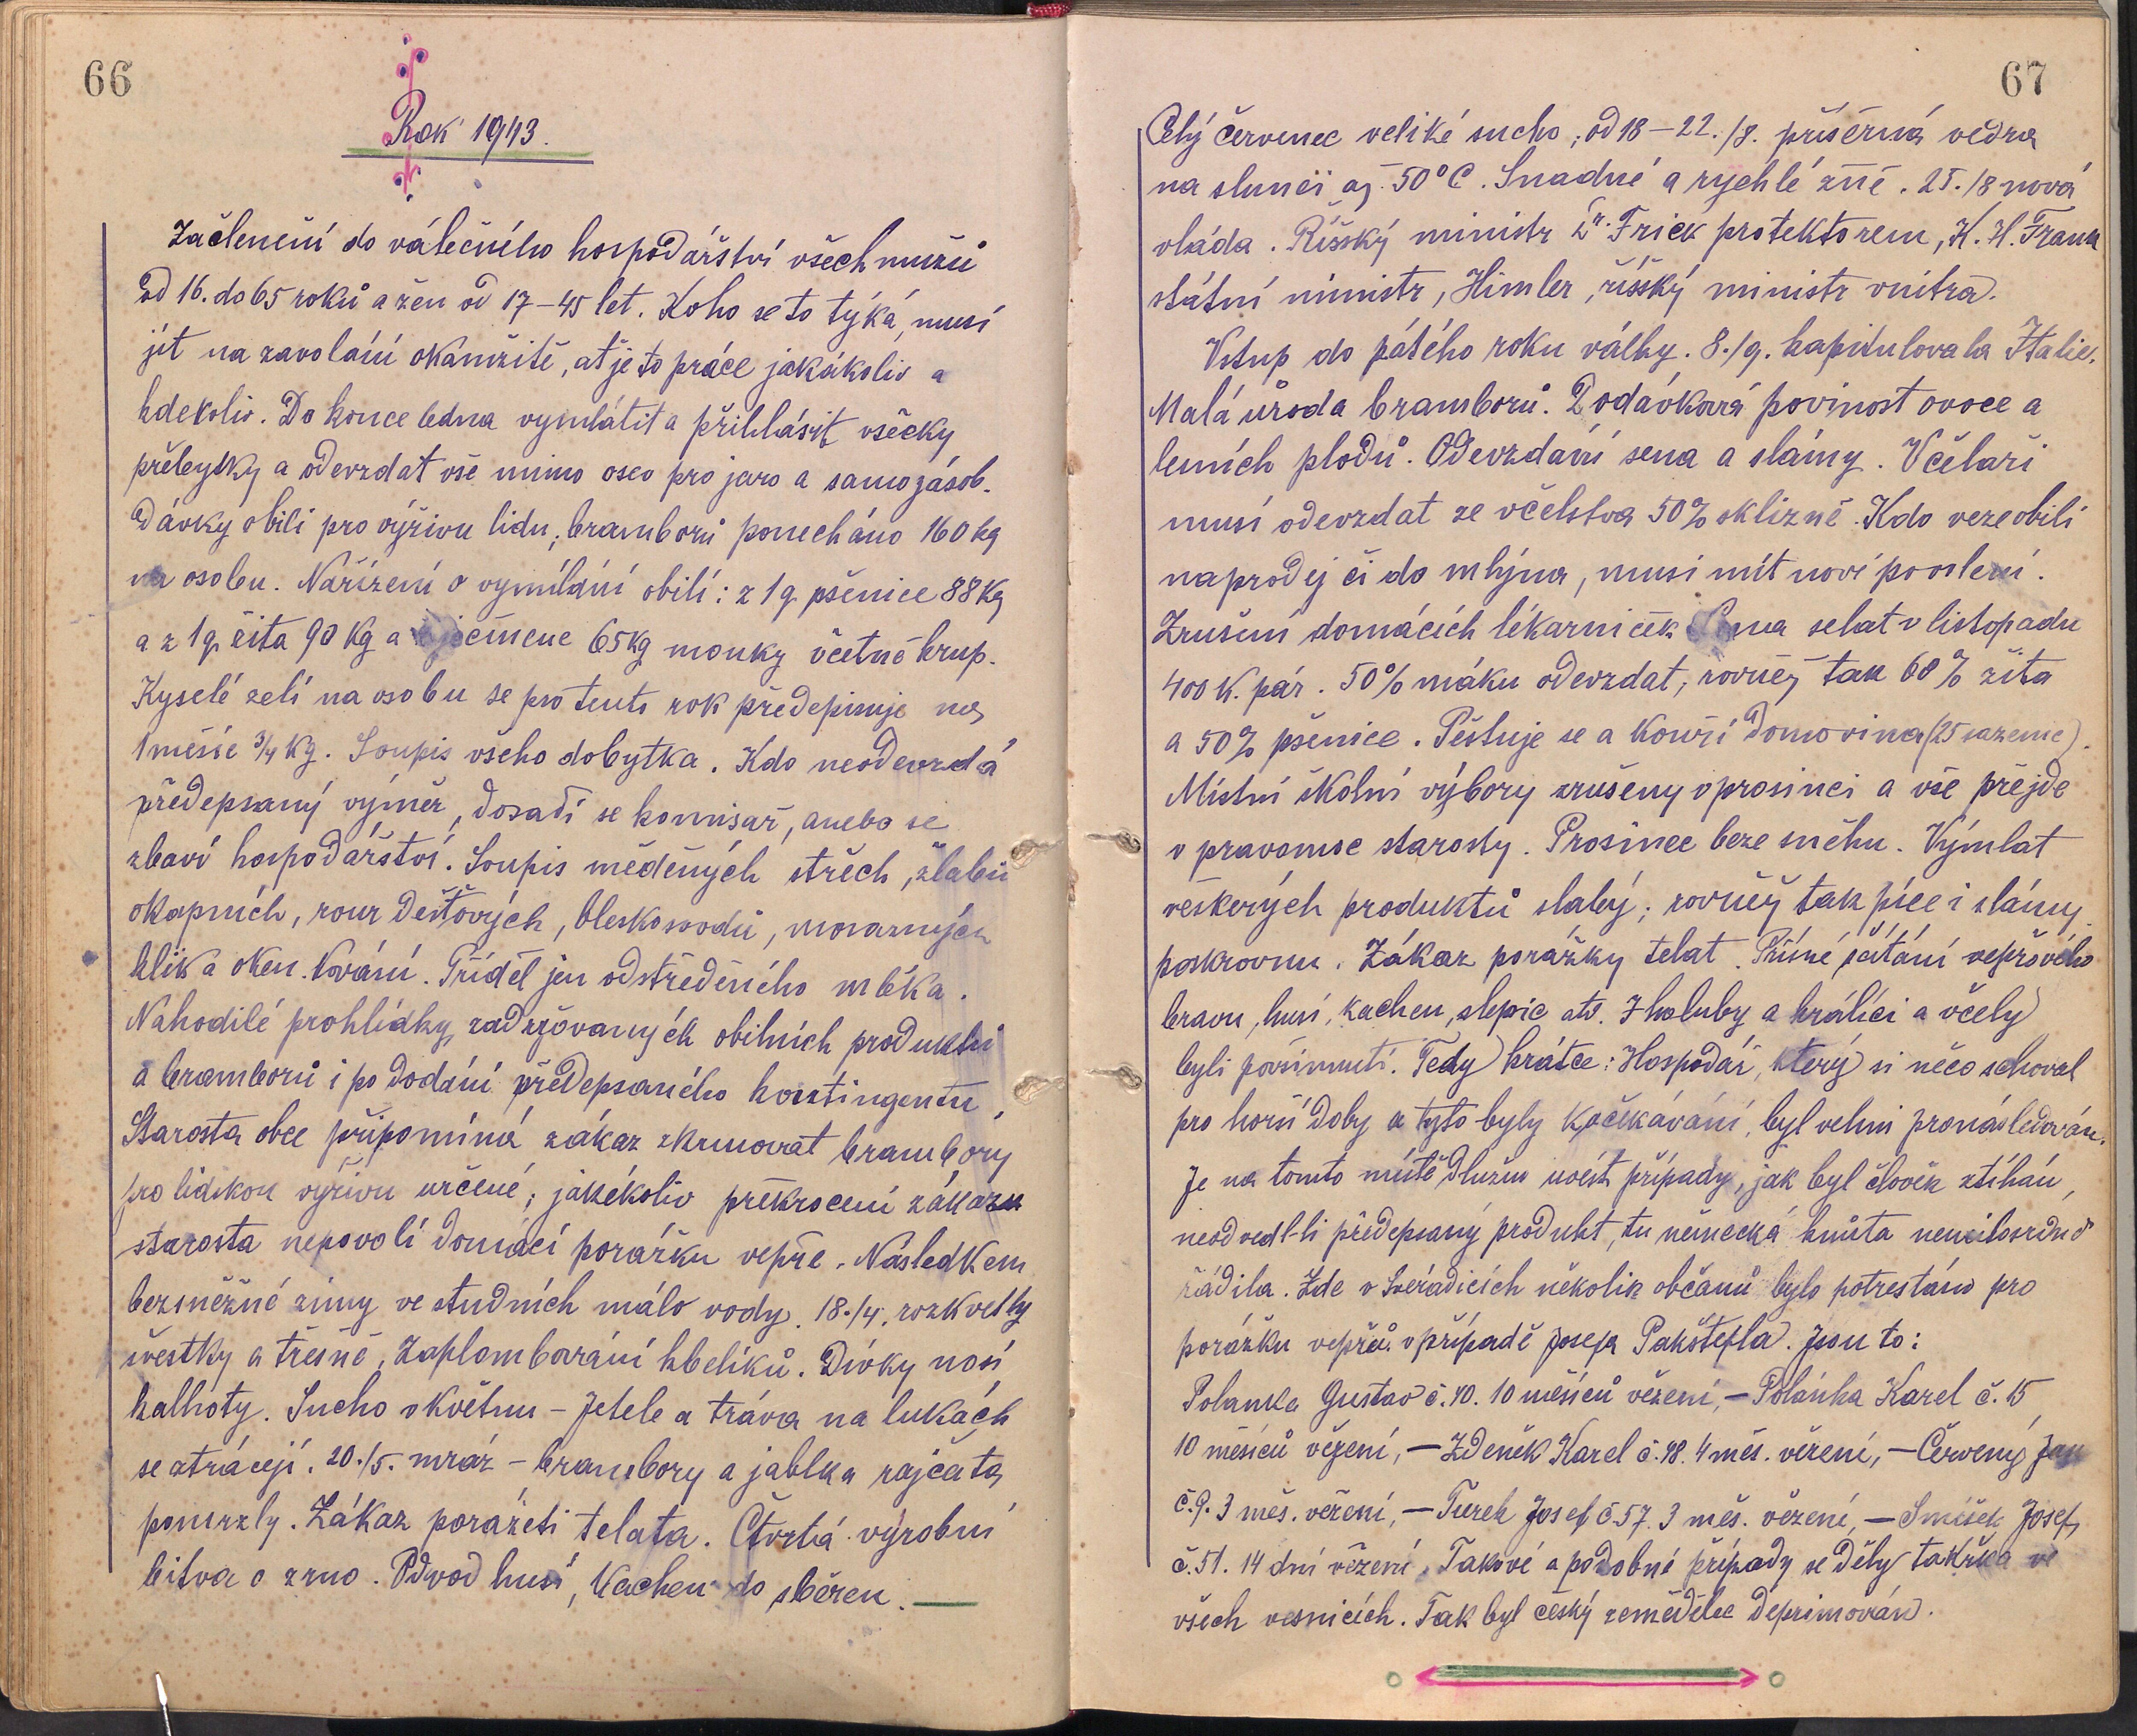 66
Rok 1943.
Začlenění do válečného hospodářství všech mužů
od 16. do 65 roků a žen od 17 – 45 let. Koho se to týká, musí
jít na zavolání okamžitě, ať je to práce jakákoliv a
kdekoliv. Do konce ledna vymlátit a přihlásit všecky
přebytky a odevzdat vše mimo osev pro jaro a samozásob.
dávky obilí pro výživu lidu, bramborů ponecháno 160 kg
na osobu. Nařízení o vymílání obilí: z 1 q pšenice 88 kg
a z 1 q žita 90 kg a ječmene 65 kg mouky včetně krup.
Kyselé zelí na osobu se pro tento rok předepisuje na
1 měsíc 3/4 kg. Soupis všeho dobytka. Kdo neodevzdá
předepsaný výměr, dosadí se komisař, anebo se
zbaví hospodářství. Soupis měděných střech, žlabů
okapních, rour dešťových, bleskosvodů, mosazných
klik a oken. kování. Příděl jen odstředěného mléka.
Náhodilé prohlídky zadržovaných obilních produktů
a bramborů i po dodání předepsaného kontingentu.
Starosta obce připomíná zákaz zkrmovat brambory
pro lidskou výživu určené; jakékoliv překročení zákazu
starosta nepovolí domácí porážku vepře. Následkem
bezsněžné zimy ve studních málo vody. 18./4. rozkvetly
švestky a třešně. Zaplombování kbelíků. Dívky nosí
kalhoty. Sucho v květnu – Jetele a tráva na lukách
se ztrácejí. 20./5. mráz – brambory a jablka rajčata
pomrzly. Zákaz porážeti telata. Čtvrtá výrobní
bitva o zrno. Odvod husí, kachen do sběren.
67
Celý červenec veliké sucho; od 18 – 22./8. příšerná vedra
na slunci až 50°C. Snadné a rychlé žně. 25./8 nová
vláda. Říšský ministr Dr. Frick protektorem, K. H. Frank
státní ministr, Himler, říšský ministr vnitra.
Vstup do pátého roku války. 8./9. kapitulovala Itálie.
Malá úroda bramborů. Dodávková povinost ovoce a
lesních plodů. Odevzdání sena a slámy. Včelaři
musí odevzdat ze včelstva 50% sklizně. Kdo veze obilí
na prodej či do mlýna, musí mít nové povolení.
Zrušení domácích lékarniček. Cena selat v listopadu
400 K. pár. 50% máku odevzdat, rovněž tak 60% žita
a 50% pšenice. Pěstuje se a kouří domovina (25 sazenic).
Místní školní výbory zrušeny v prosinci a vše přejde
v pravomoc starosty. Prosinec beze sněhu. Výmlat
veškerých produktů slabý; rovněž tak píce i slámy
poskrovnu. Zákaz porážky telat. Přísné sčítání vepřového
bravu, husí, kachen, slepic atd. I holuby a králíci a včely
byli povšimnuti. Tedy krátce: Hospodář, který si něco schoval
pro horší doby a tyto byly k očekávání, byl velmi pronásledován.
Je na tomto místě dlužno uvést případy, jak byl člověk stíhán,
neodvedl-li předepsaný produkt, tu německá knůta nemilosrdně
řádila. Zde v Svéradicích několik občanů bylo potrestáno pro
porážku vepřů v případě Josefa Pakštefla. Jsou to:
Polanka Gustav č. 40. 10 měsíců vězení, – Polánka Karel č. 15
10 měsíců vězení, – Zdeněk Karel č. 48. 4 měs. vězení, – Červený Jan
č. 9. 3 měs. vězení, – Turek Josef č. 57. 3 měs. vězení, – Smíšek Josef,
č. 51. 14 dní vězení. Takové a podobné případy se děly takřka ve
všech vesnicích. Tak byl český zemědělec deprimován.